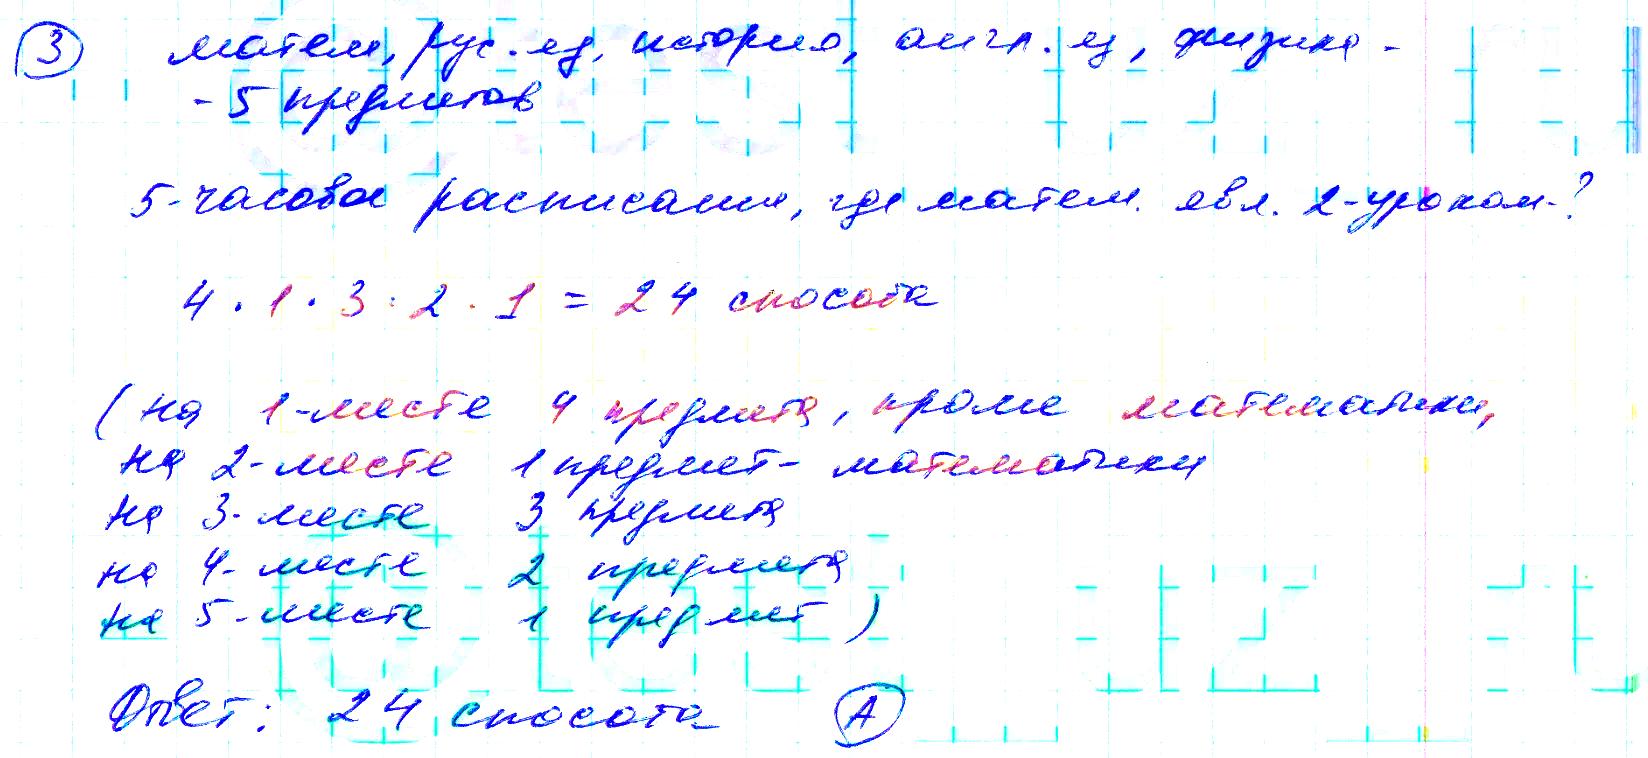 ③ матем, рус. яз, история, англ. яз, физика -
- 5 предметов
5-часовое расписание, где матем. явл. 2-уроком-?
4 · 1 · 3 · 2 · 1 = 24 способа
( на 1-месте 4 предмета, кроме математики,
на 2-месте 1 предмет - математики
на 3-месте 3 предмета
на 4-месте 2 предмета
на 5-месте 1 предмет )
Ответ: 24 способа Ⓐ